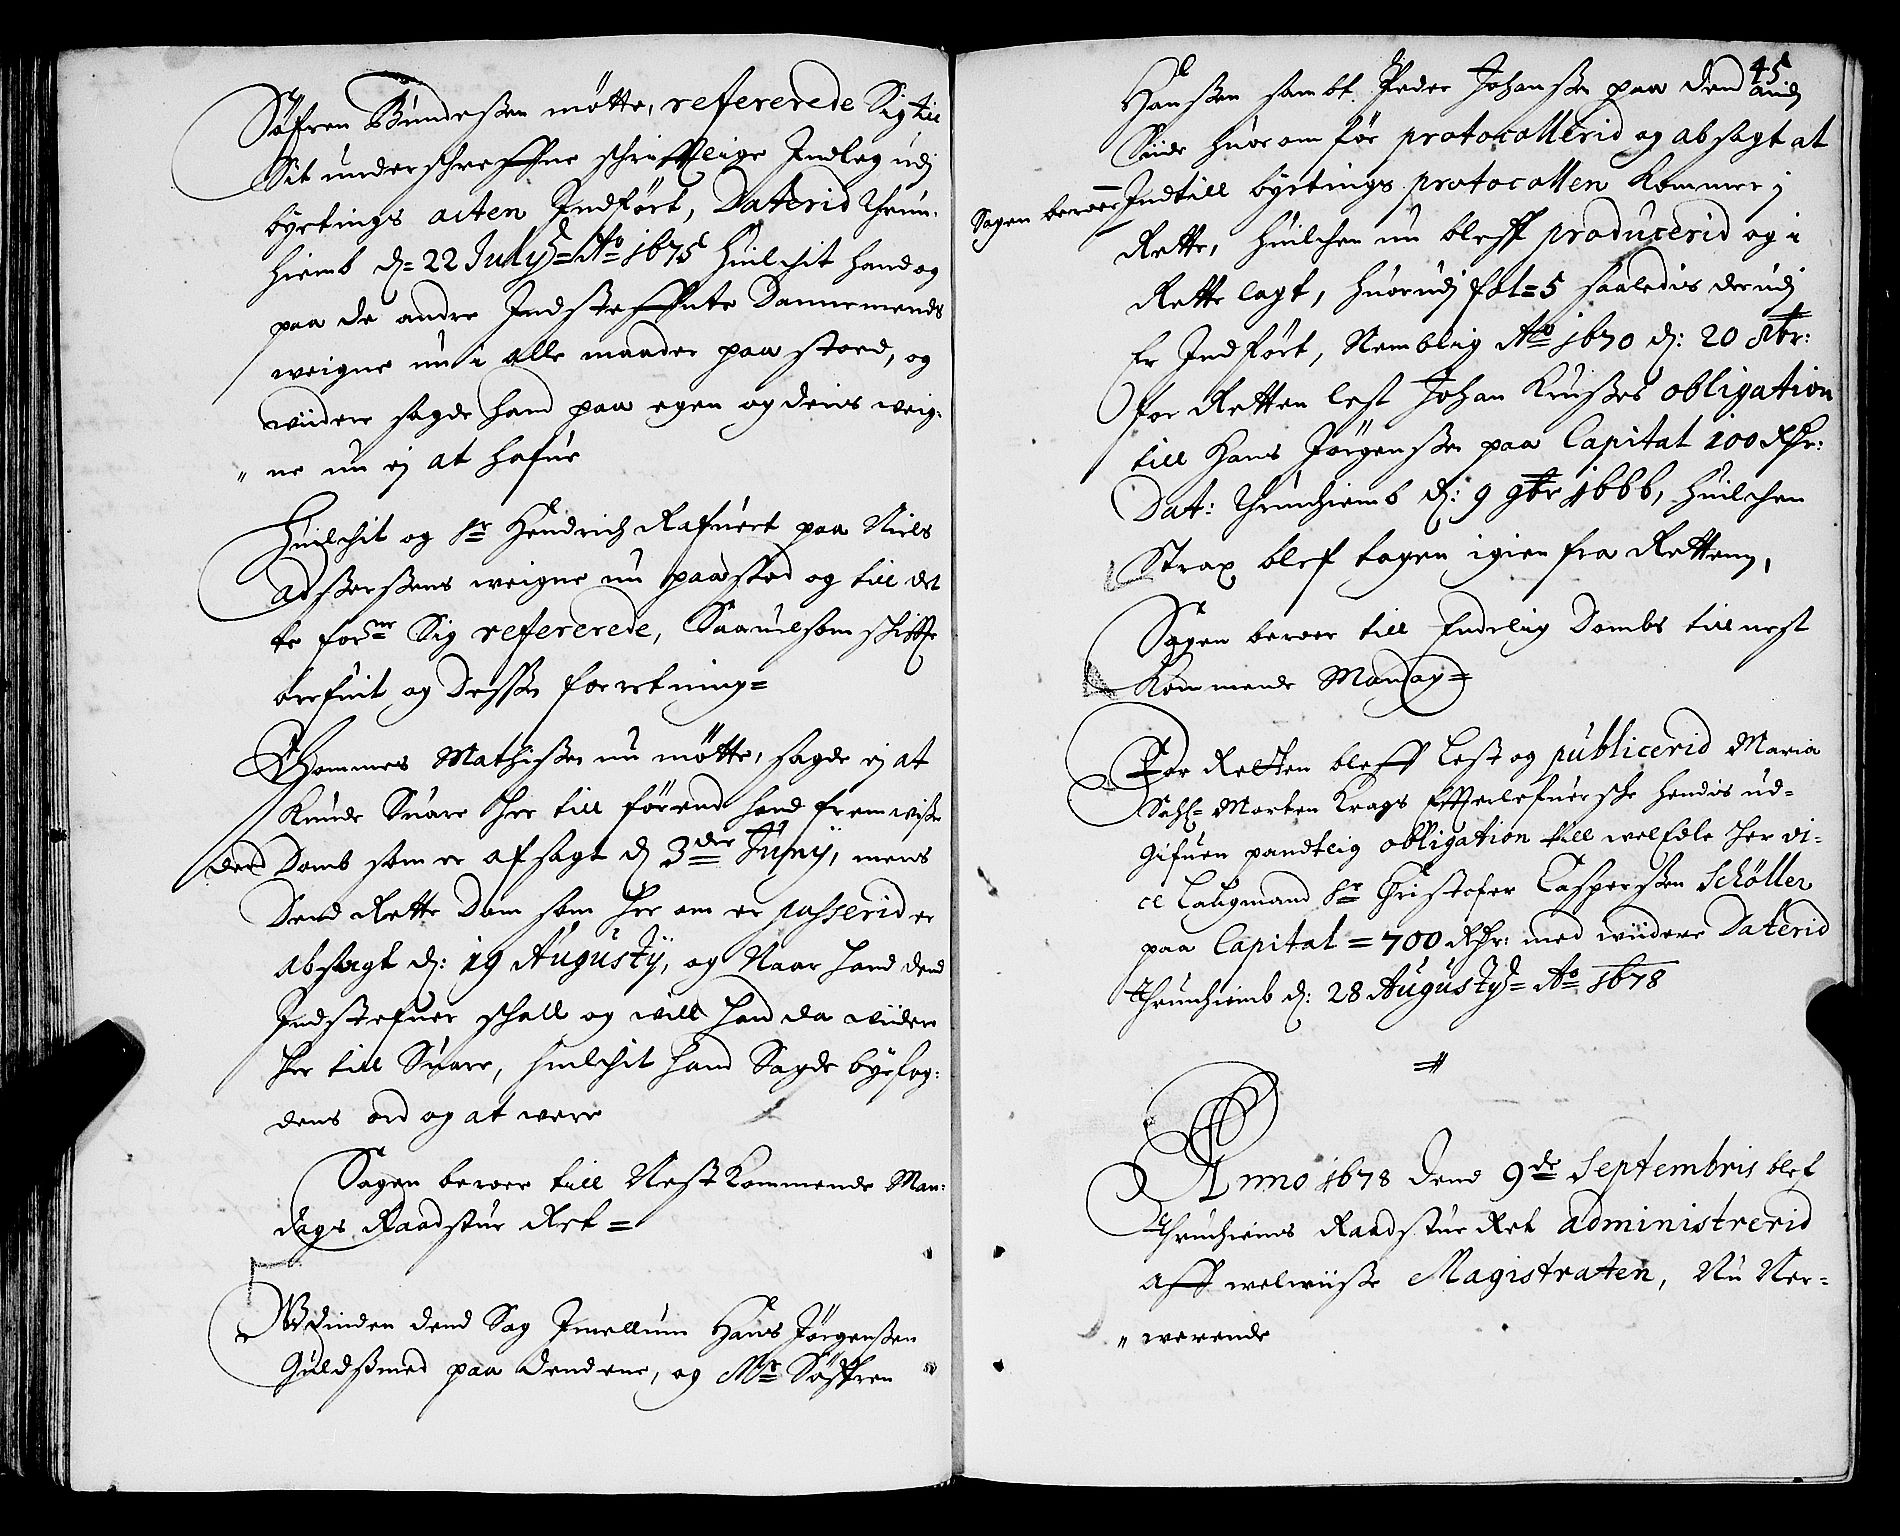 Søfren Bundesen møtte, refererede Sig till
Sit underschreffne schrifftlige Indleg udj
byetings acten Indført, Daterid Thrun-
hiemb d= 22 Julij= Ao 1675 huilchit hand og
paa de andre Indsteffnte Dannemends
weigne nu i alle maader paa stoed, og
widere sagde hand paa egen og deris weig-
" ne nu ej at hafue
Huilchit og Sr Hendrich Rafuert paa Niels
Adtzersens weigne nu paastod og till det
te forne Sig refererede, Saauelsom schiffte
brefuit og Desse forretning=
Thommes Mathissen nu møtte, sagde ej at
kunde Suare her till førend hand frem wiste
dend Domb som er afsagt d 3die Junij, mens
Dend Rette Dom som her om er passerid er
absagt d: 19 Augustij, og Naar hand dend
Indstefner schall og will hand da widere
her till Suare, huilchit hand Sagde byefog-
dens ord og at were
Sagen beroer till Nest Kommende Man-
dags Raadstue Ret =
Udinden dend Sag Imellum Hans Jørgensen
Guldsmed paa dend ene, og Mr Søffren
45
Hansen sambt Peder Johansen paa dend anden
Siide huor om før protocollerid og absagt at
Sagen beroer Indtill byetings protocollen Kommer j
Rette, huilchen nu bleff producerid og i
Rette lagt, huorudj fol=5 saaledis der udj
Er Indført, Nemblig Ao 1670 d: 20 8br:
for Retten lest Johan Kruses obligation
till Hans Jørgensen paa Capital 100 Rdr:
Dat: Thrunhiemb d: 9 9br 1666, huilchen
Strax blef tagen igien fra Retten,
Sagen beroer till Endelig Dombs till nest
Kommende Mandag=
For Retten bleff Lest og publicerid Maria
Sahl= Morten Krags Effterlefuersche hendis ud-
gifuen pandtlig obligation till welEdle her vi-
ce Laugmand Sr Christofer Caspersen Schøller
paa Capital = 700 Rdr: med widere Daterid
Thrunhiemb d: 28 Augustij= Ao 1678
Anno 1678 Dend 9de Septembris blef
Thrunhiems Raadstue Ret administrerid
Aff welwiise Magistraten, Nu Ner-
" werende